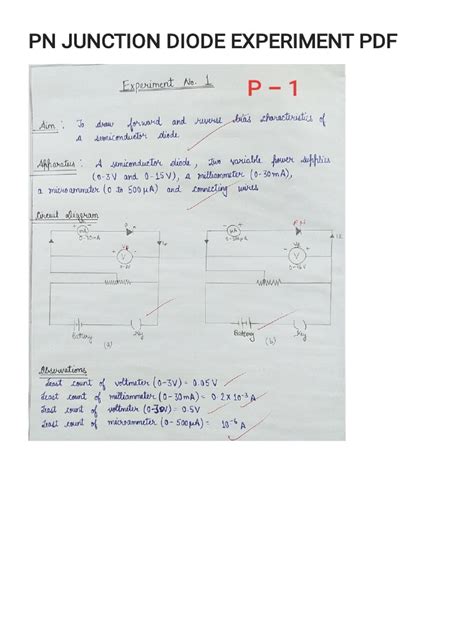 PN JUNCTION DIODE EXPERIMENT PDF
Experiment No. 1
P – 1
Aim : To draw forward and reverse bias characteristics of
a semiconductor diode
Apparatus : A semiconductor diode, Two variable power supplies
(0-3V and 0-15V), a milliammeter (0-30mA),
a microammeter (0 to 500μA) and connecting wires
Circuit diagram
mA
0-30mA
V
μA
V
Battery
Key
(a)
Battery
Key
(b)
Observations
Least count of voltmeter (0-3V) = 0.05V
Least count of milliammeter (0-30mA) = 0.2 x 10⁻³ A
Least count of voltmeter (0-30V) = 0.5V
Least count of microammeter (0-500μA) = 10⁻⁶ A